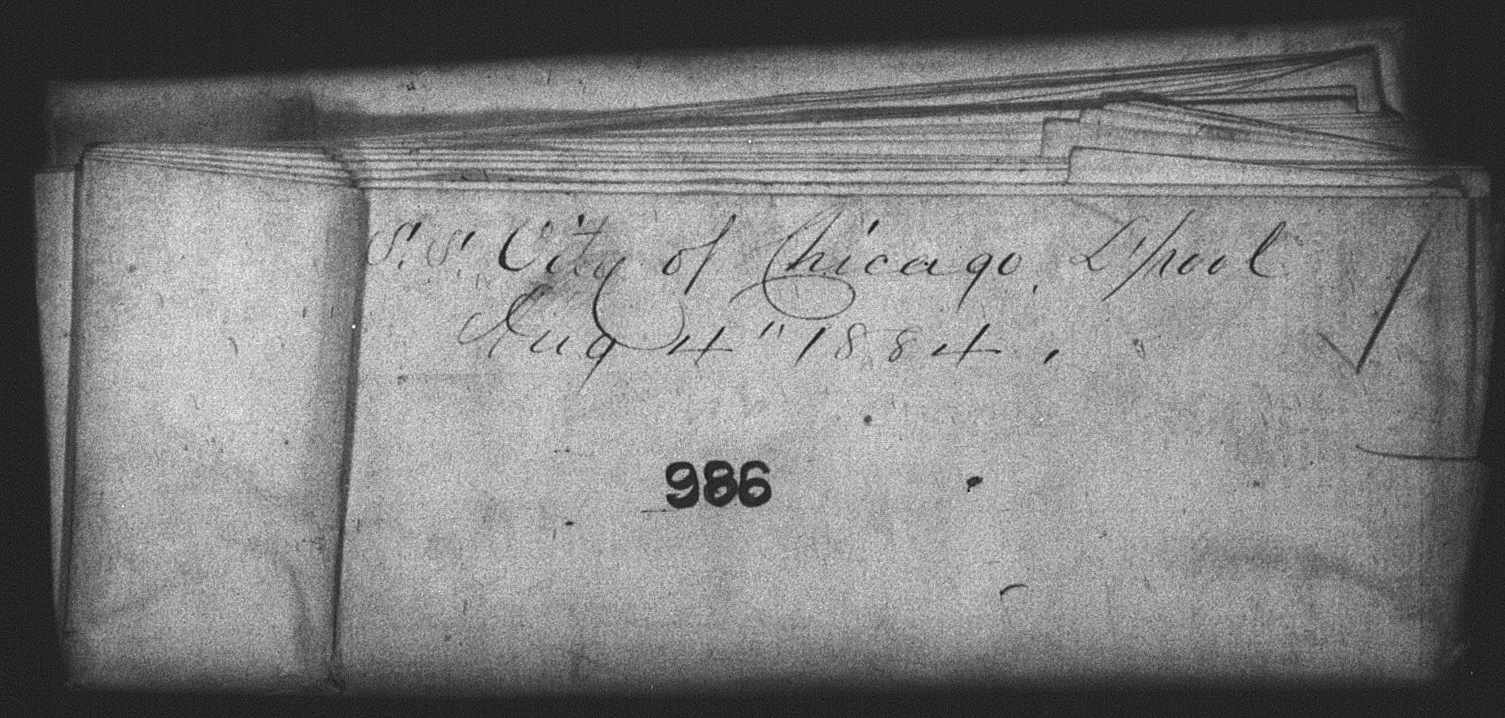 S.S. City of Chicago, L'pool
Aug 4" 1884.
986